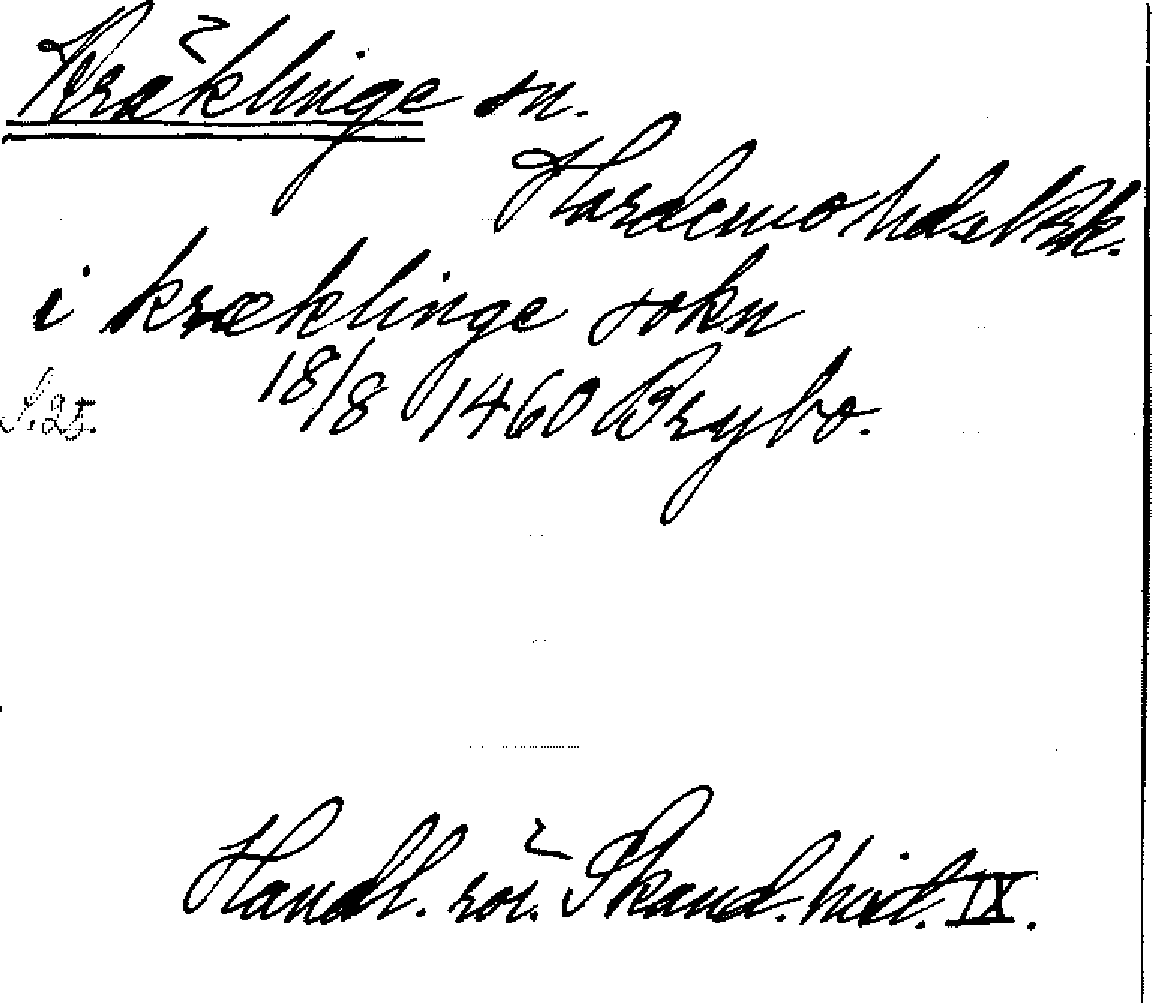 Kräklinge sn.
Hardemo hds Nrk.
i kræklinge sokn
S. 25. 18/8 1460 Brybo.
Handl. rör. Skand. hist. IX.